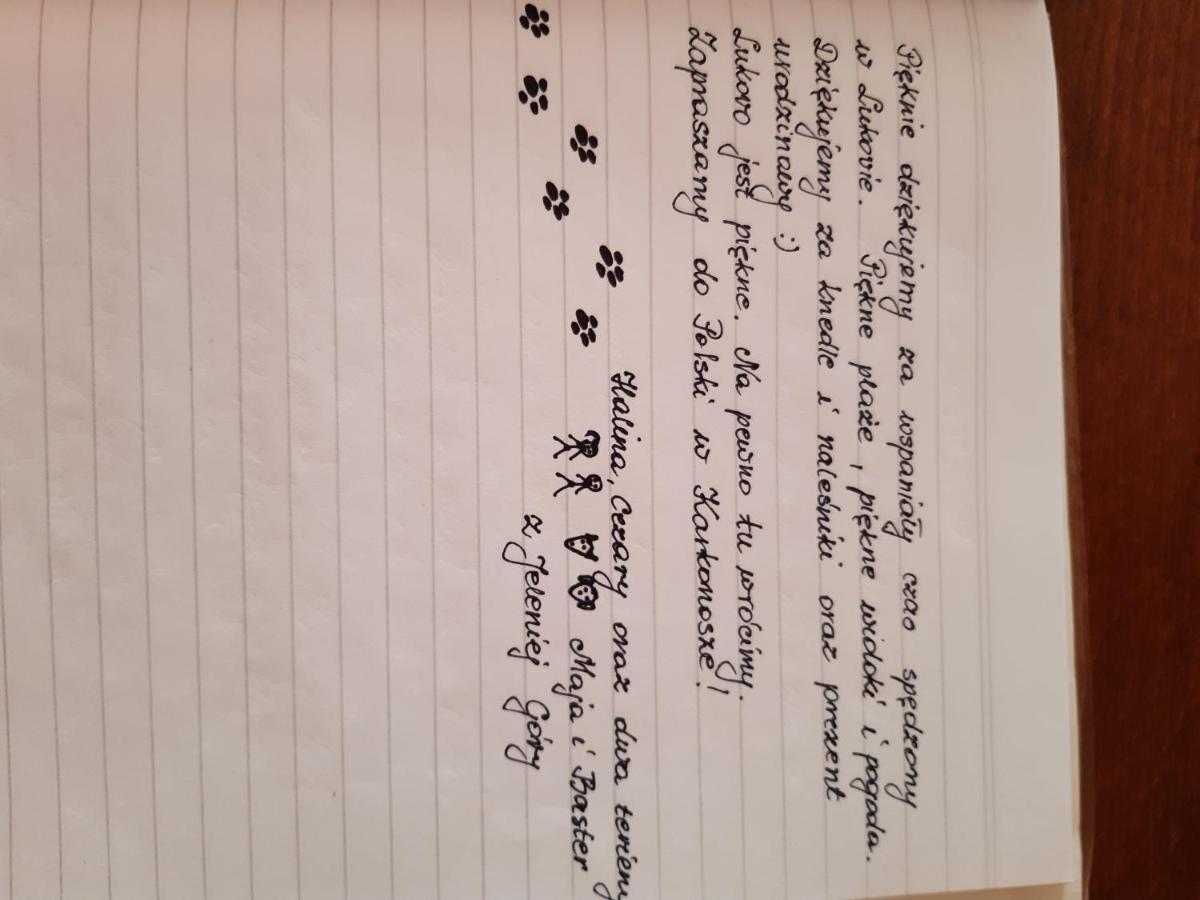 Pięknie dziękujemy za wspaniały czas spędzony
w Lukovie. Piękne plaże, piękne widoki i pogoda.
Dziękujemy za knedle i naleśniki oraz prezent
urodzinowy :)
Lukovo jest piękne. Na pewno tu wrócimy.
Zapraszamy do Polski w Karkonosze!
Halina, Cezary oraz dwa teriery
Maja i Baster
z Jeleniej Góry